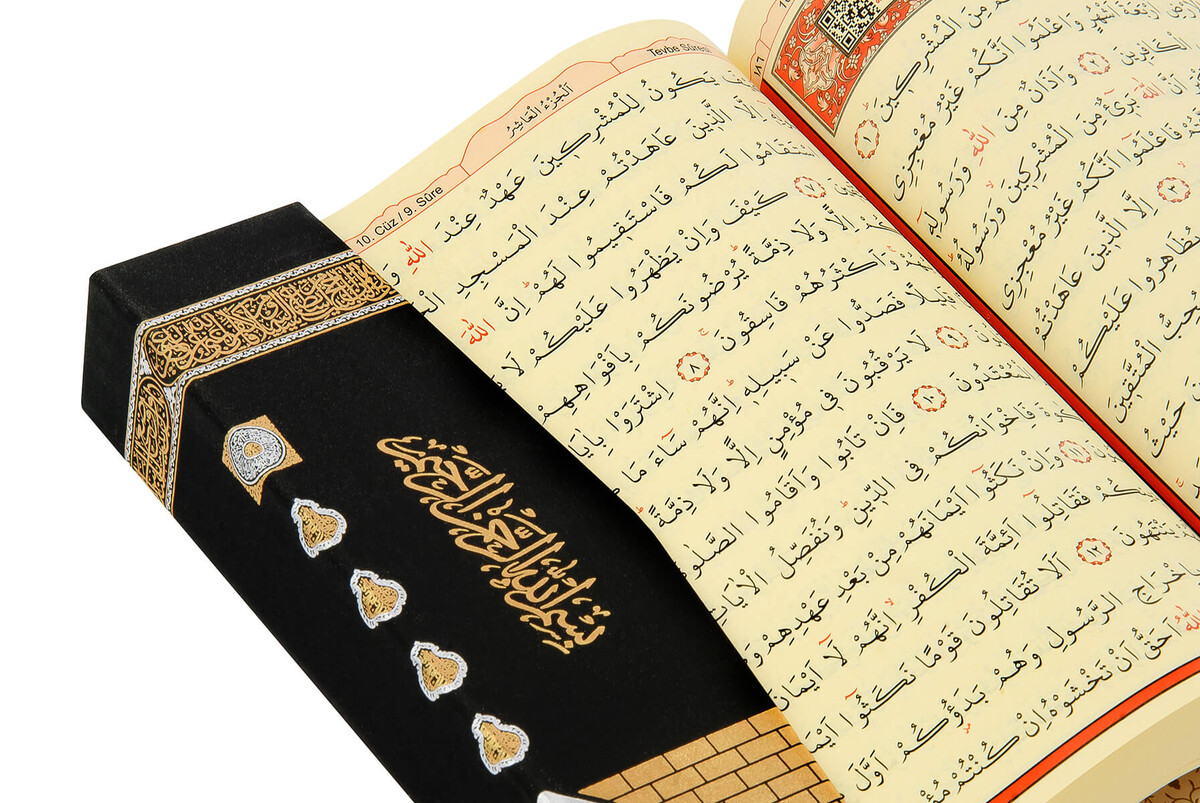 ١٨٦
مِنَ الْمُشْرِكٖينَۜ ١
اَرْبَعَةَ اَشْهُرٍ وَاعْلَمُٓوا اَنَّكُمْ غَيْرُ مُعْجِزِي
الْكَافِرٖينَ ٢ وَاَذَانٌ مِنَ اللّٰهِ وَرَسُولِهٖٓ
اَنَّ اللّٰهَ بَرٖٓيءٌ مِنَ الْمُشْرِكٖينَ وَرَسُولُهُۜ
فَاعْلَمُٓوا اَنَّكُمْ غَيْرُ مُعْجِزِي
٣ اِلَّا الَّذٖينَ عَاهَدْتُمْ
يُظَاهِرُوا عَلَيْكُمْ
يُحِبُّ الْمُتَّقٖينَ
حَيْثُ
Tevbe Sûresi
اَلْجُزْءُ الْعَاشِرُ
10. Cüz / 9. Sûre
يَكُونُ لِلْمُشْرِكٖينَ عَهْدٌ عِنْدَ اللّٰهِ
اِلَّا الَّذٖينَ عَاهَدْتُمْ عِنْدَ الْمَسْجِدِ
اسْتَقَامُوا لَكُمْ فَاسْتَقٖيمُوا لَهُمْۜ اِنَّ اللّٰهَ
٧ كَيْفَ وَاِنْ يَظْهَرُوا عَلَيْكُمْ لَا
اِلًّا وَلَا ذِمَّةًۜ يُرْضُونَكُمْ بِاَفْوَاهِهِمْ
وَاَكْثَرُهُمْ فَاسِقُونَۚ ٨ اِشْتَرَوْا بِاٰيَاتِ
فَصَدُّوا عَنْ سَبٖيلِهٖۜ اِنَّهُمْ سَٓاءَ مَا
٩ لَا يَرْقُبُونَ فٖي مُؤْمِنٍ اِلًّا وَلَا ذِمَّةًۜ
الْمُعْتَدُونَ ١٠ فَاِنْ تَابُوا وَاَقَامُوا الصَّلٰوةَ
فَاِخْوَانُكُمْ فِي الدّٖينِۜ وَنُفَصِّلُ الْاٰيَاتِ
١١ وَاِنْ نَكَثُٓوا اَيْمَانَهُمْ مِنْ بَعْدِ عَهْدِهِمْ
فَقَاتِلُٓوا اَئِمَّةَ الْكُفْرِۙ اِنَّهُمْ لَٓا اَيْمَانَ
يَنْتَهُونَ ١٢ اَلَا تُقَاتِلُونَ قَوْمًا نَكَثُٓوا
بِاِخْرَاجِ الرَّسُولِ وَهُمْ بَدَؤُكُمْ اَوَّلَ
اللّٰهُ اَحَقُّ اَنْ تَخْشَوْهُ اِنْ كُنْتُمْ
بسم الله الرحمن الرحيم